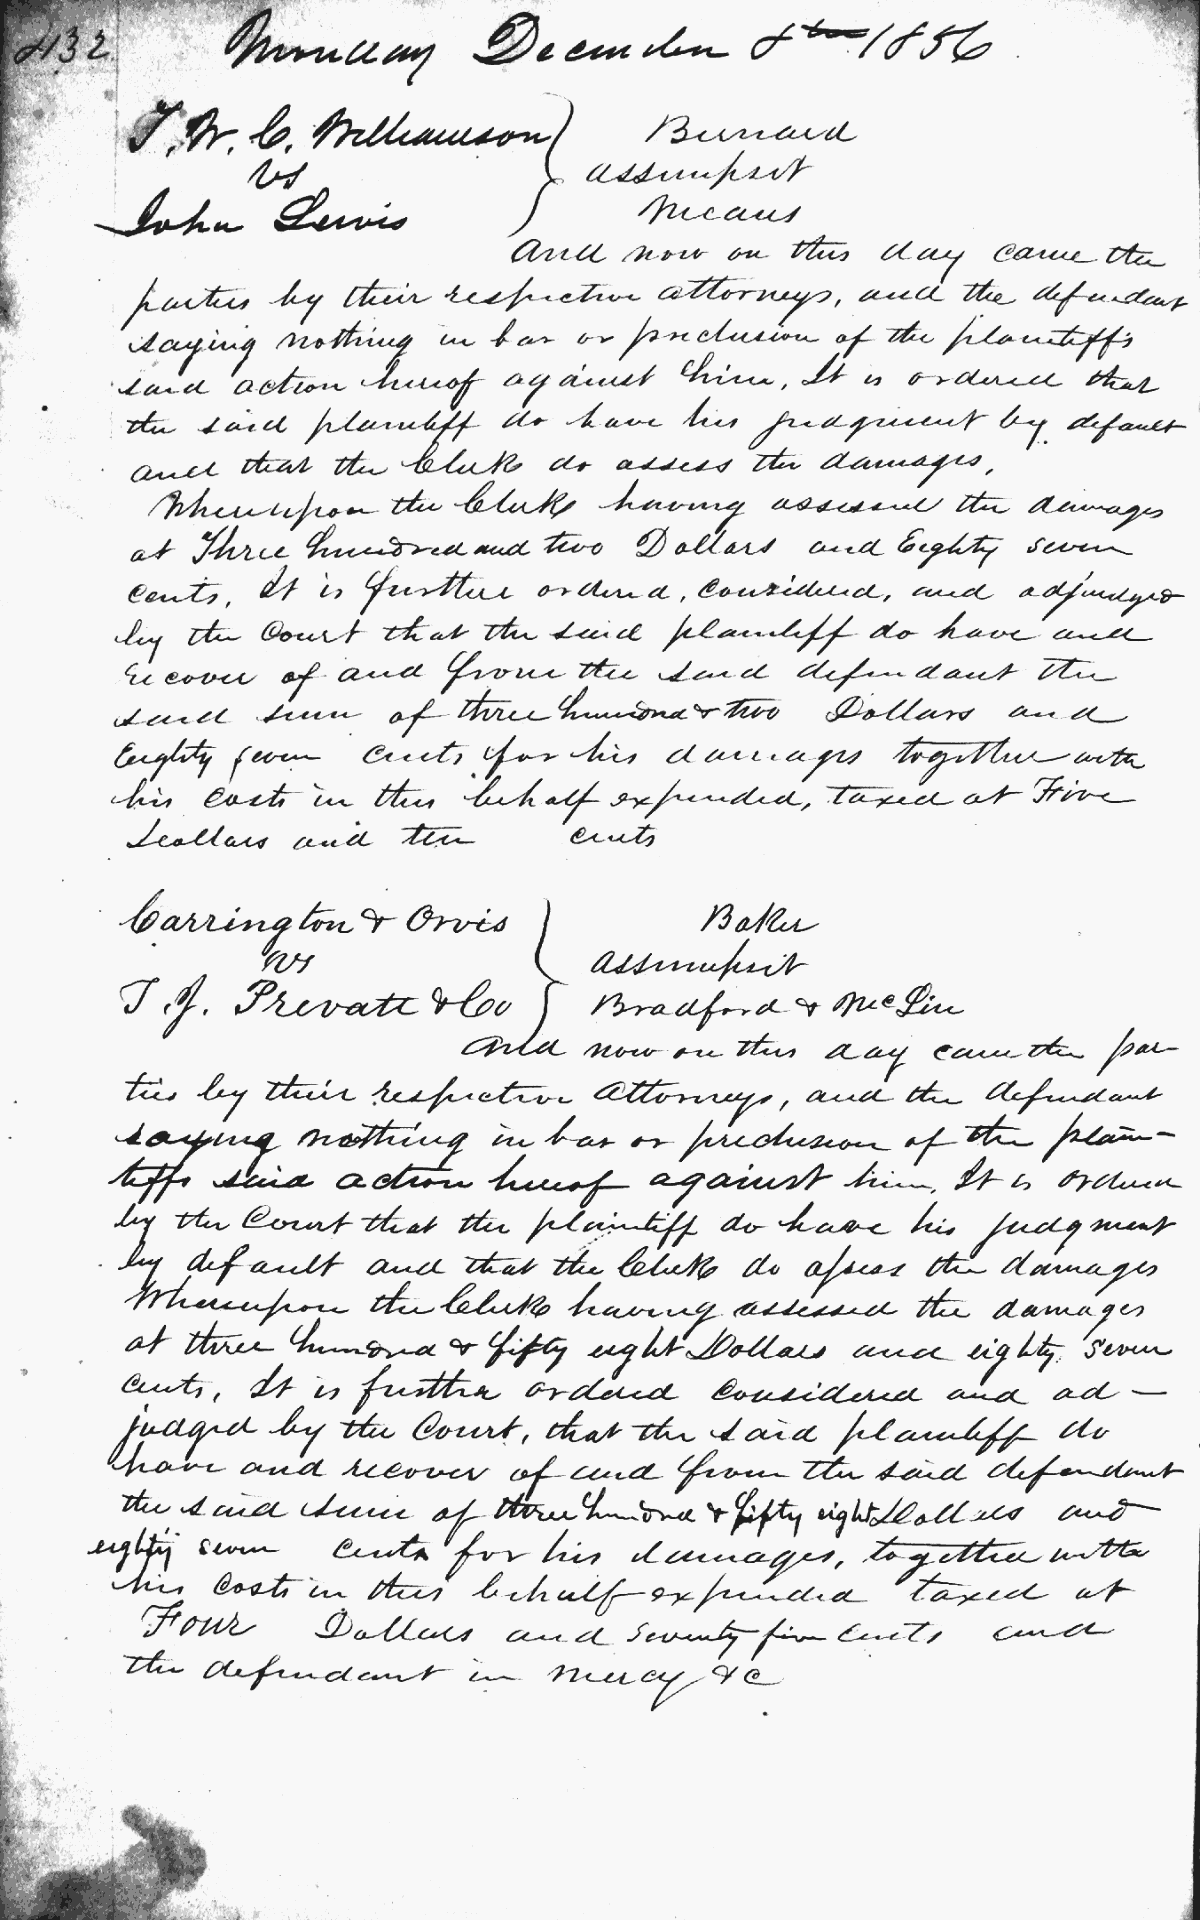 432 Monday December 8th 1856
T. W. C. Williamson Burnard
vs assumpsit
John Lewis Means
And now on this day came the
parties by their respective attorneys, and the defendant
saying nothing in bar or preclusion of the plaintiffs
said action hereof against him, It is ordered that
the said plaintiff do have his judgment by default
and that the Clerk do assess the damages,
Whereupon the Clerk having assessed the damages
at Three hundred and two Dollars and Eighty seven
cents, It is further ordered, considered, and adjudged
by the Court that the said plaintiff do have and
recover of and from the said defendant the
said sum of three hundred & two Dollars and
Eighty seven cents for his damages together with
his costs in this behalf expended, taxed at Five
Dollars and ten cents
Carrington & Orvis Baker
vs assumpsit
T. J. Prevatt & Co Bradford & McLin
And now on this day came the par-
ties by their respective attorneys, and the defendant
saying nothing in bar or preclusion of the plain-
tiffs said action hereof against him, It is ordered
by the Court that the plaintiff do have his judgment
by default and that the Clerk do assess the damages
Whereupon the Clerk having assessed the damages
at three hundred & fifty eight Dollars and eighty seven
cents, It is further ordered considered and ad-
judged by the Court, that the said plaintiff do
have and recover of and from the said defendant
the said sum of three hundred & fifty eight Dollars and
eighty seven cents for his damages, together with
his costs in this behalf expended taxed at
Four Dollars and seventy five cents and
the defendant in mercy &c